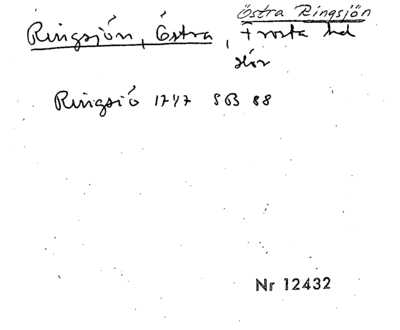 Östra Ringsjön
Ringsjön, Östra, Frosta hd
Hör
Ringsiö 1747 SB 88
Nr 12432